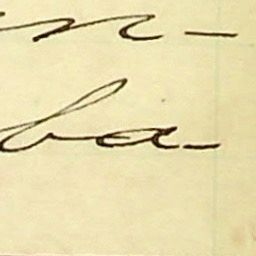 n-
ba-